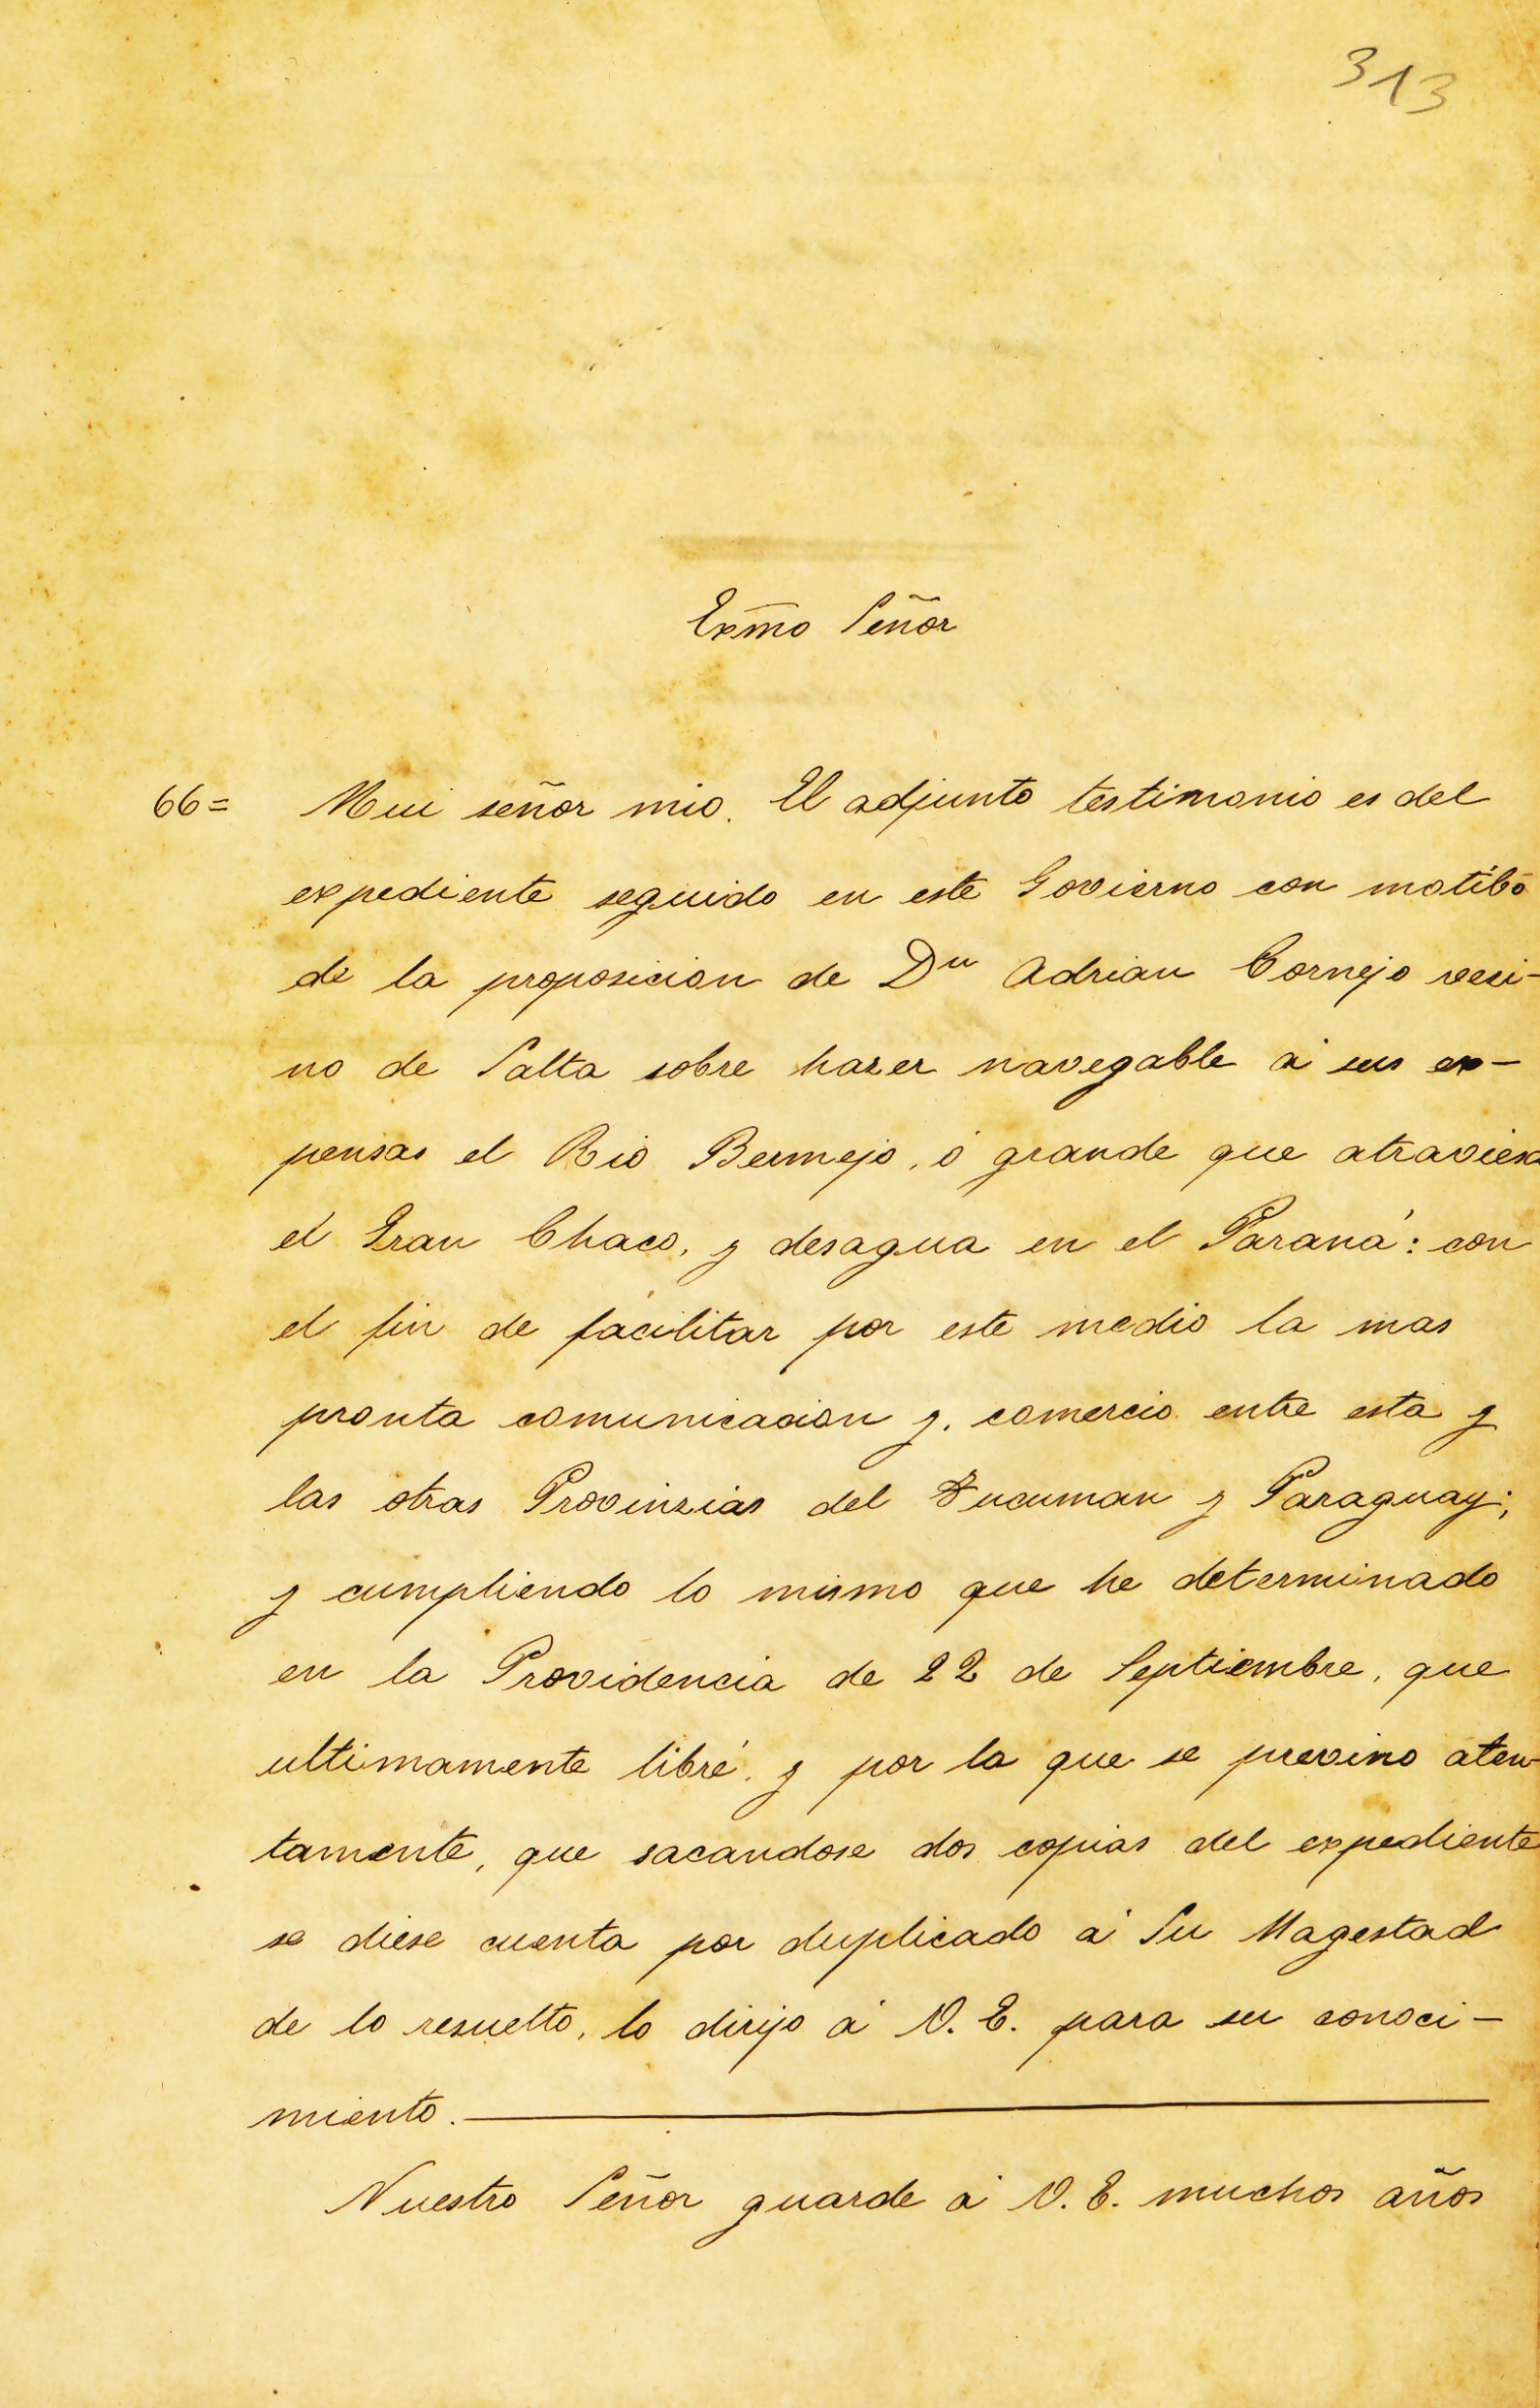 313
Exmo Señor
66= Mui señor mio. El adjunto testimonio es del
expediente seguido en este Govierno con motibo
de la proposicion de Dn Adrian Cornejo veci-
no de Salta sobre hazer navegable á sus ex-
pensas el Rio Bermejo, ó grande que atraviesa
el Gran Chaco, y desagua en el Paraná: con
el fin de facilitar por este medio la mas
pronta comunicacion y, comercio entre esta y
las otras Provinzias del Tucuman y Paraguay;
y cumpliendo lo mismo que he determinado
en la Providencia de 22 de Septiembre, que
ultimamente libré, y por la que se previno aten-
tamente, que sacandose dos copias del expediente
se diese cuenta por duplicado á Su Magestad
de lo resuelto, lo dirijo á V. E. para su conoci-
miento.
Nuestro Señor guarde á V. E. muchos años